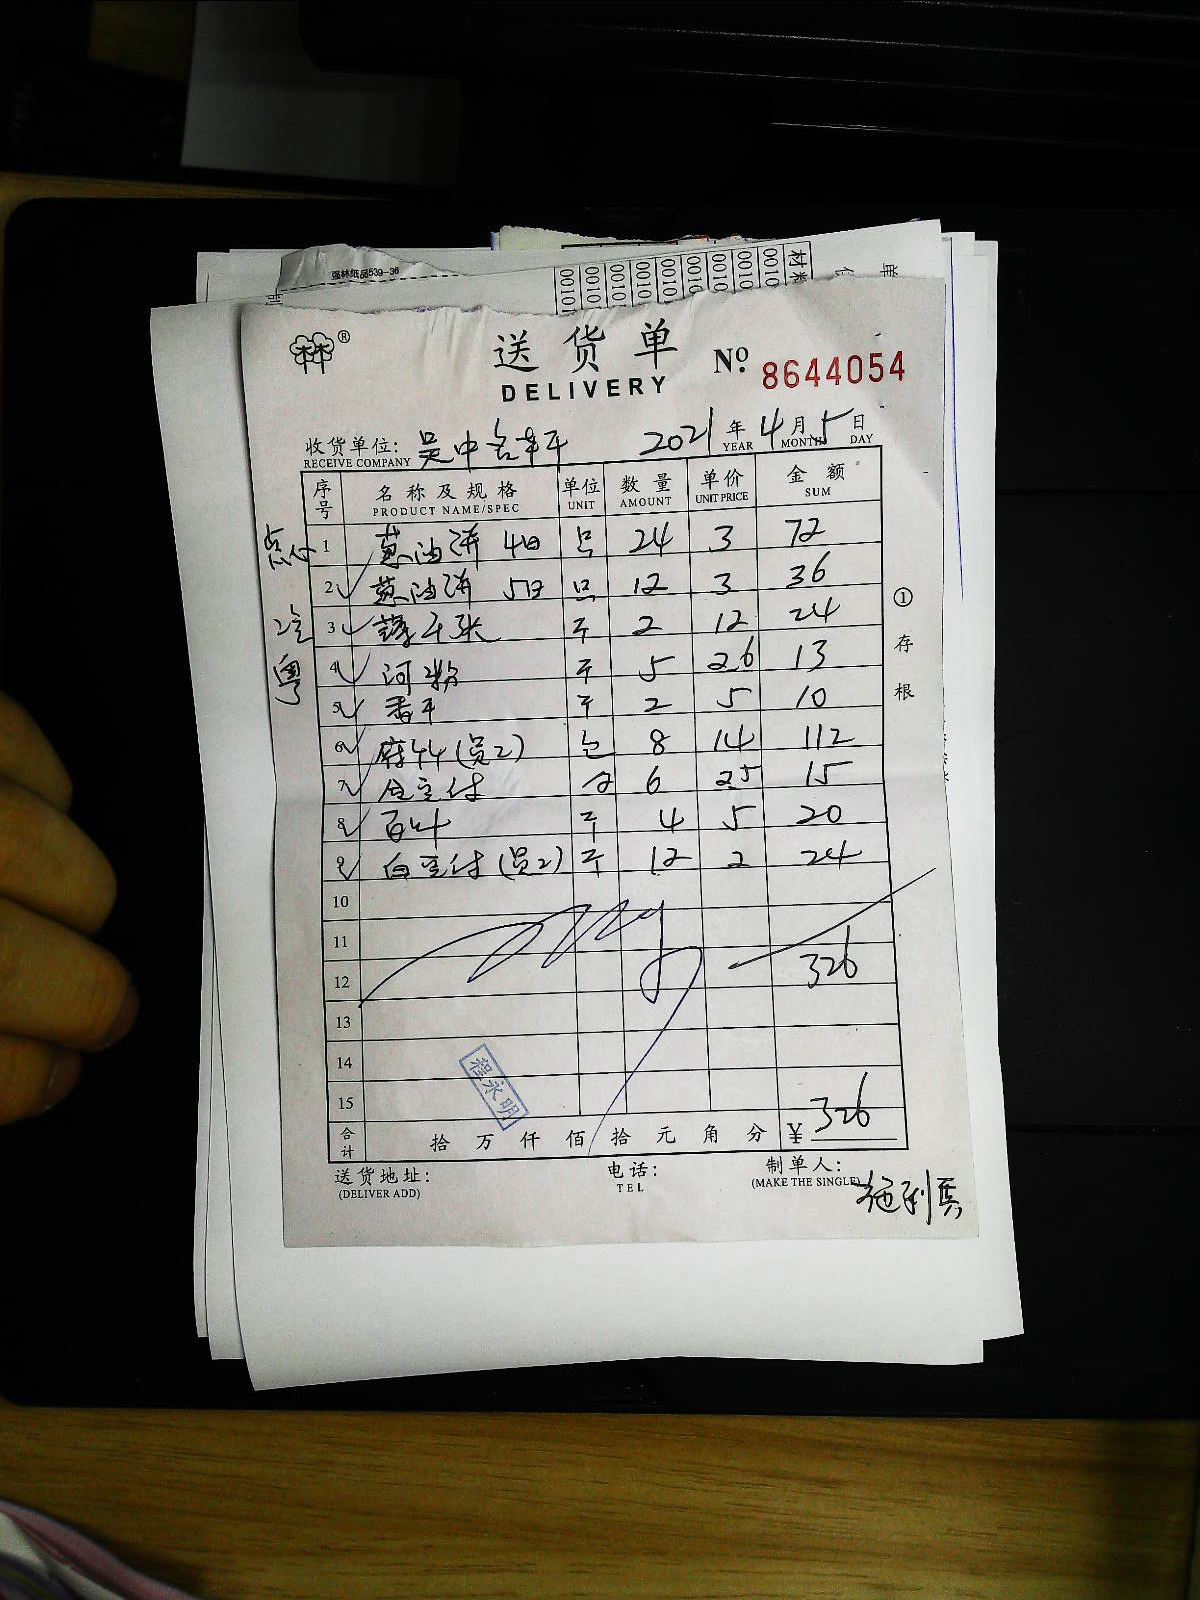 强林纸品539-36
材料
0010 0010 0010 00101 00101 00101 0010 00101 00101
单
林®
送货单
DELIVERY
№ 8644054
收货单位: 吴中
RECEIVE COMPANY
2021年4月5日
YEAR MONTH DAY
序号 名称及规格 单位 数量 单价 金额
PRODUCT NAME/SPEC UNIT AMOUNT UNIT PRICE SUM
1 葱油饼 4日 只 24 3 72
2 葱油饼 5日 只 12 3 36
3 薄千张 斤 2 12 24
4 河粉 斤 5 2.6 13
5 香干 斤 2 5 10
6 (员工) 包 8 14 112
7 6 2.5 15
8 百叶 斤 4 5 20
9 白豆付(员工) 斤 12 2 24
10
11
12 326
13
14
15
程永明
合计 拾万仟佰拾元角分 ¥ 326
送货地址: 电话: 制单人: 施利
(DELIVER ADD) TEL (MAKE THE SINGLE)
①存根
点心
粤